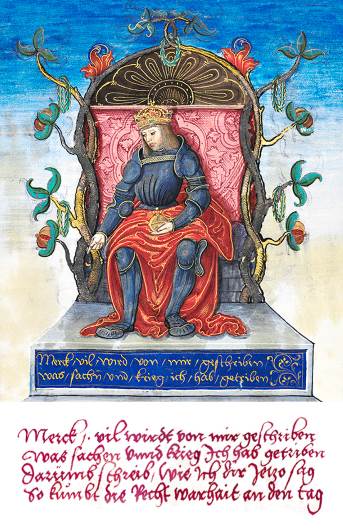 Merck / vil / wird / von / mir / geschriben
was / sachn / und / krieg / ich / hab / getriben
Merck / . vil wirdt von mir geschriben
Was sachen unnd krieg Ich hab getriben
Darumb schreib / Wie Ich dir Jetzo sag
So kumbt die Recht warhait an den tag